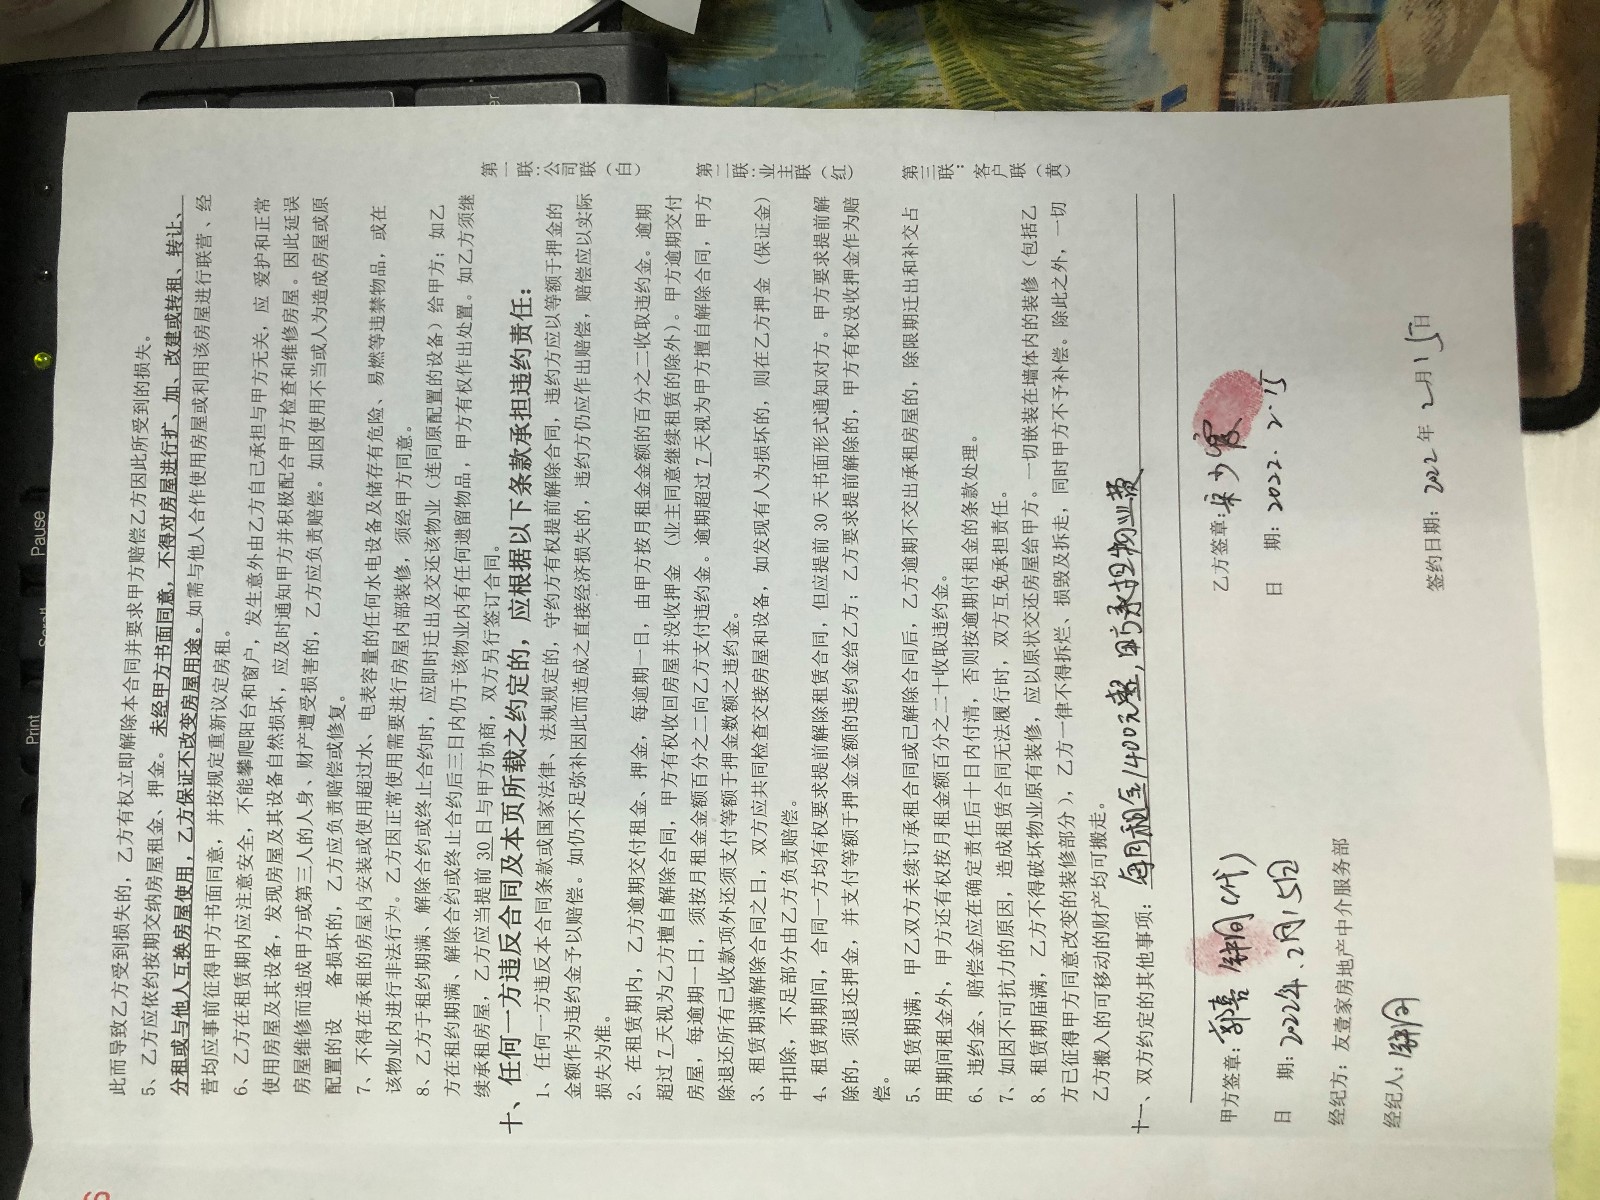 此而导致乙方受到损失的，乙方有权立即解除本合同并要求甲方赔偿乙方因此所受到的损失。
5、乙方应依约按期交纳房屋租金、押金。未经甲方书面同意，不得对房屋进行扩、加、改建或转租、转让、
分租或与他人互换房屋使用，乙方保证不改变房屋用途。如需与他人合作使用房屋或利用该房屋进行联营、经
营均应事前征得甲方书面同意，并按规定重新议定房租。
6、乙方在租赁期内应注意安全，不能攀爬阳台和窗户，发生意外由乙方自己承担与甲方无关，应 爱护和正常
使用房屋及其设备，发现房屋及其设备自然损坏，应及时通知甲方并积极配合甲方检查和维修房屋。因此延误
房屋维修而造成甲方或第三人的人身、财产遭受损害的，乙方应负责赔偿。如因使用不当或人为造成房屋或原
配置的设 备损坏的，乙方应负责赔偿或修复。
7、不得在承租的房屋内安装或使用超过水、电表容量的任何水电设备及储存有危险、易燃等违禁物品，或在
该物业内进行非法行为。乙方因正常使用需要进行房屋内部装修，须经甲方同意。
8、乙方于租约期满、解除合约或终止合约时，应即时迁出及交还该物业（连同原配置的设备）给甲方；如乙
方在租约期满、解除合约或终止合约后三日内仍于该物业内有任何遗留物品，甲方有权作出处置。如乙方须继
续承租房屋，乙方应当提前 30 日与甲方协商，双方另行签订合同。
十、任何一方违反合同及本页所载之约定的，应根据以下条款承担违约责任：
1、任何一方违反本合同条款或国家法律、法规规定的，守约方有权提前解除合同，违约方应以等额于押金的
金额作为违约金予以赔偿。如仍不足弥补因此而造成之直接经济损失的，违约方仍应作出赔偿，赔偿应以实际
损失为准。
2、在租赁期内，乙方逾期交付租金、押金，每逾期一日，由甲方按月租金金额的百分之二收取违约金。逾期
超过 7 天视为乙方擅自解除合同，甲方有权收回房屋并没收押金（业主同意继续租赁的除外）。甲方逾期交付
房屋，每逾期一日，须按月租金金额百分之二向乙方支付违约金。逾期超过 7 天视为甲方擅自解除合同，甲方
除退还所有已收款项外还须支付等额于押金数额之违约金。
3、租赁期满解除合同之日，双方应共同检查交接房屋和设备，如发现有人为损坏的，则在乙方押金（保证金）
中扣除，不足部分由乙方负责赔偿。
4、租赁期期间，合同一方均有权要求提前解除租赁合同，但应提前 30 天书面形式通知对方。甲方要求提前解
除的，须退还押金，并支付等额于押金金额的违约金给乙方；乙方要求提前解除的，甲方有权没收押金作为赔
偿。
5、租赁期满，甲乙双方未续订承租合同或已解除合同后，乙方逾期不交出承租房屋的，除限期迁出和补交占
用期间租金外，甲方还有权按月租金额百分之二十收取违约金。
6、违约金、赔偿金应在确定责任后十日内付清，否则按逾期付租金的条款处理。
7、如因不可抗力的原因，造成租赁合同无法履行时，双方互免承担责任。
8、租赁期届满，乙方不得破坏物业原有装修，应以原状交还房屋给甲方。一切嵌装在墙体内的装修（包括乙
方已征得甲方同意改变的装修部分），乙方一律不得拆烂、损毁及拆走，同时甲方不予补偿。除此之外，一切
乙方搬入的可移动的财产均可搬走。
十一、双方约定的其他事项：每月租金1400元整，甲方承担物业费
甲方签章： （代） 乙方签章：
日 期：2022年.2月15日 日 期：2022.2.15
经纪方：友壹家房地产中介服务部
经纪人： 签约日期：2022年2月15日
第一联：公司联（白）
第二联：业主联（红）
第三联：客户联（黄）
Print
Pause